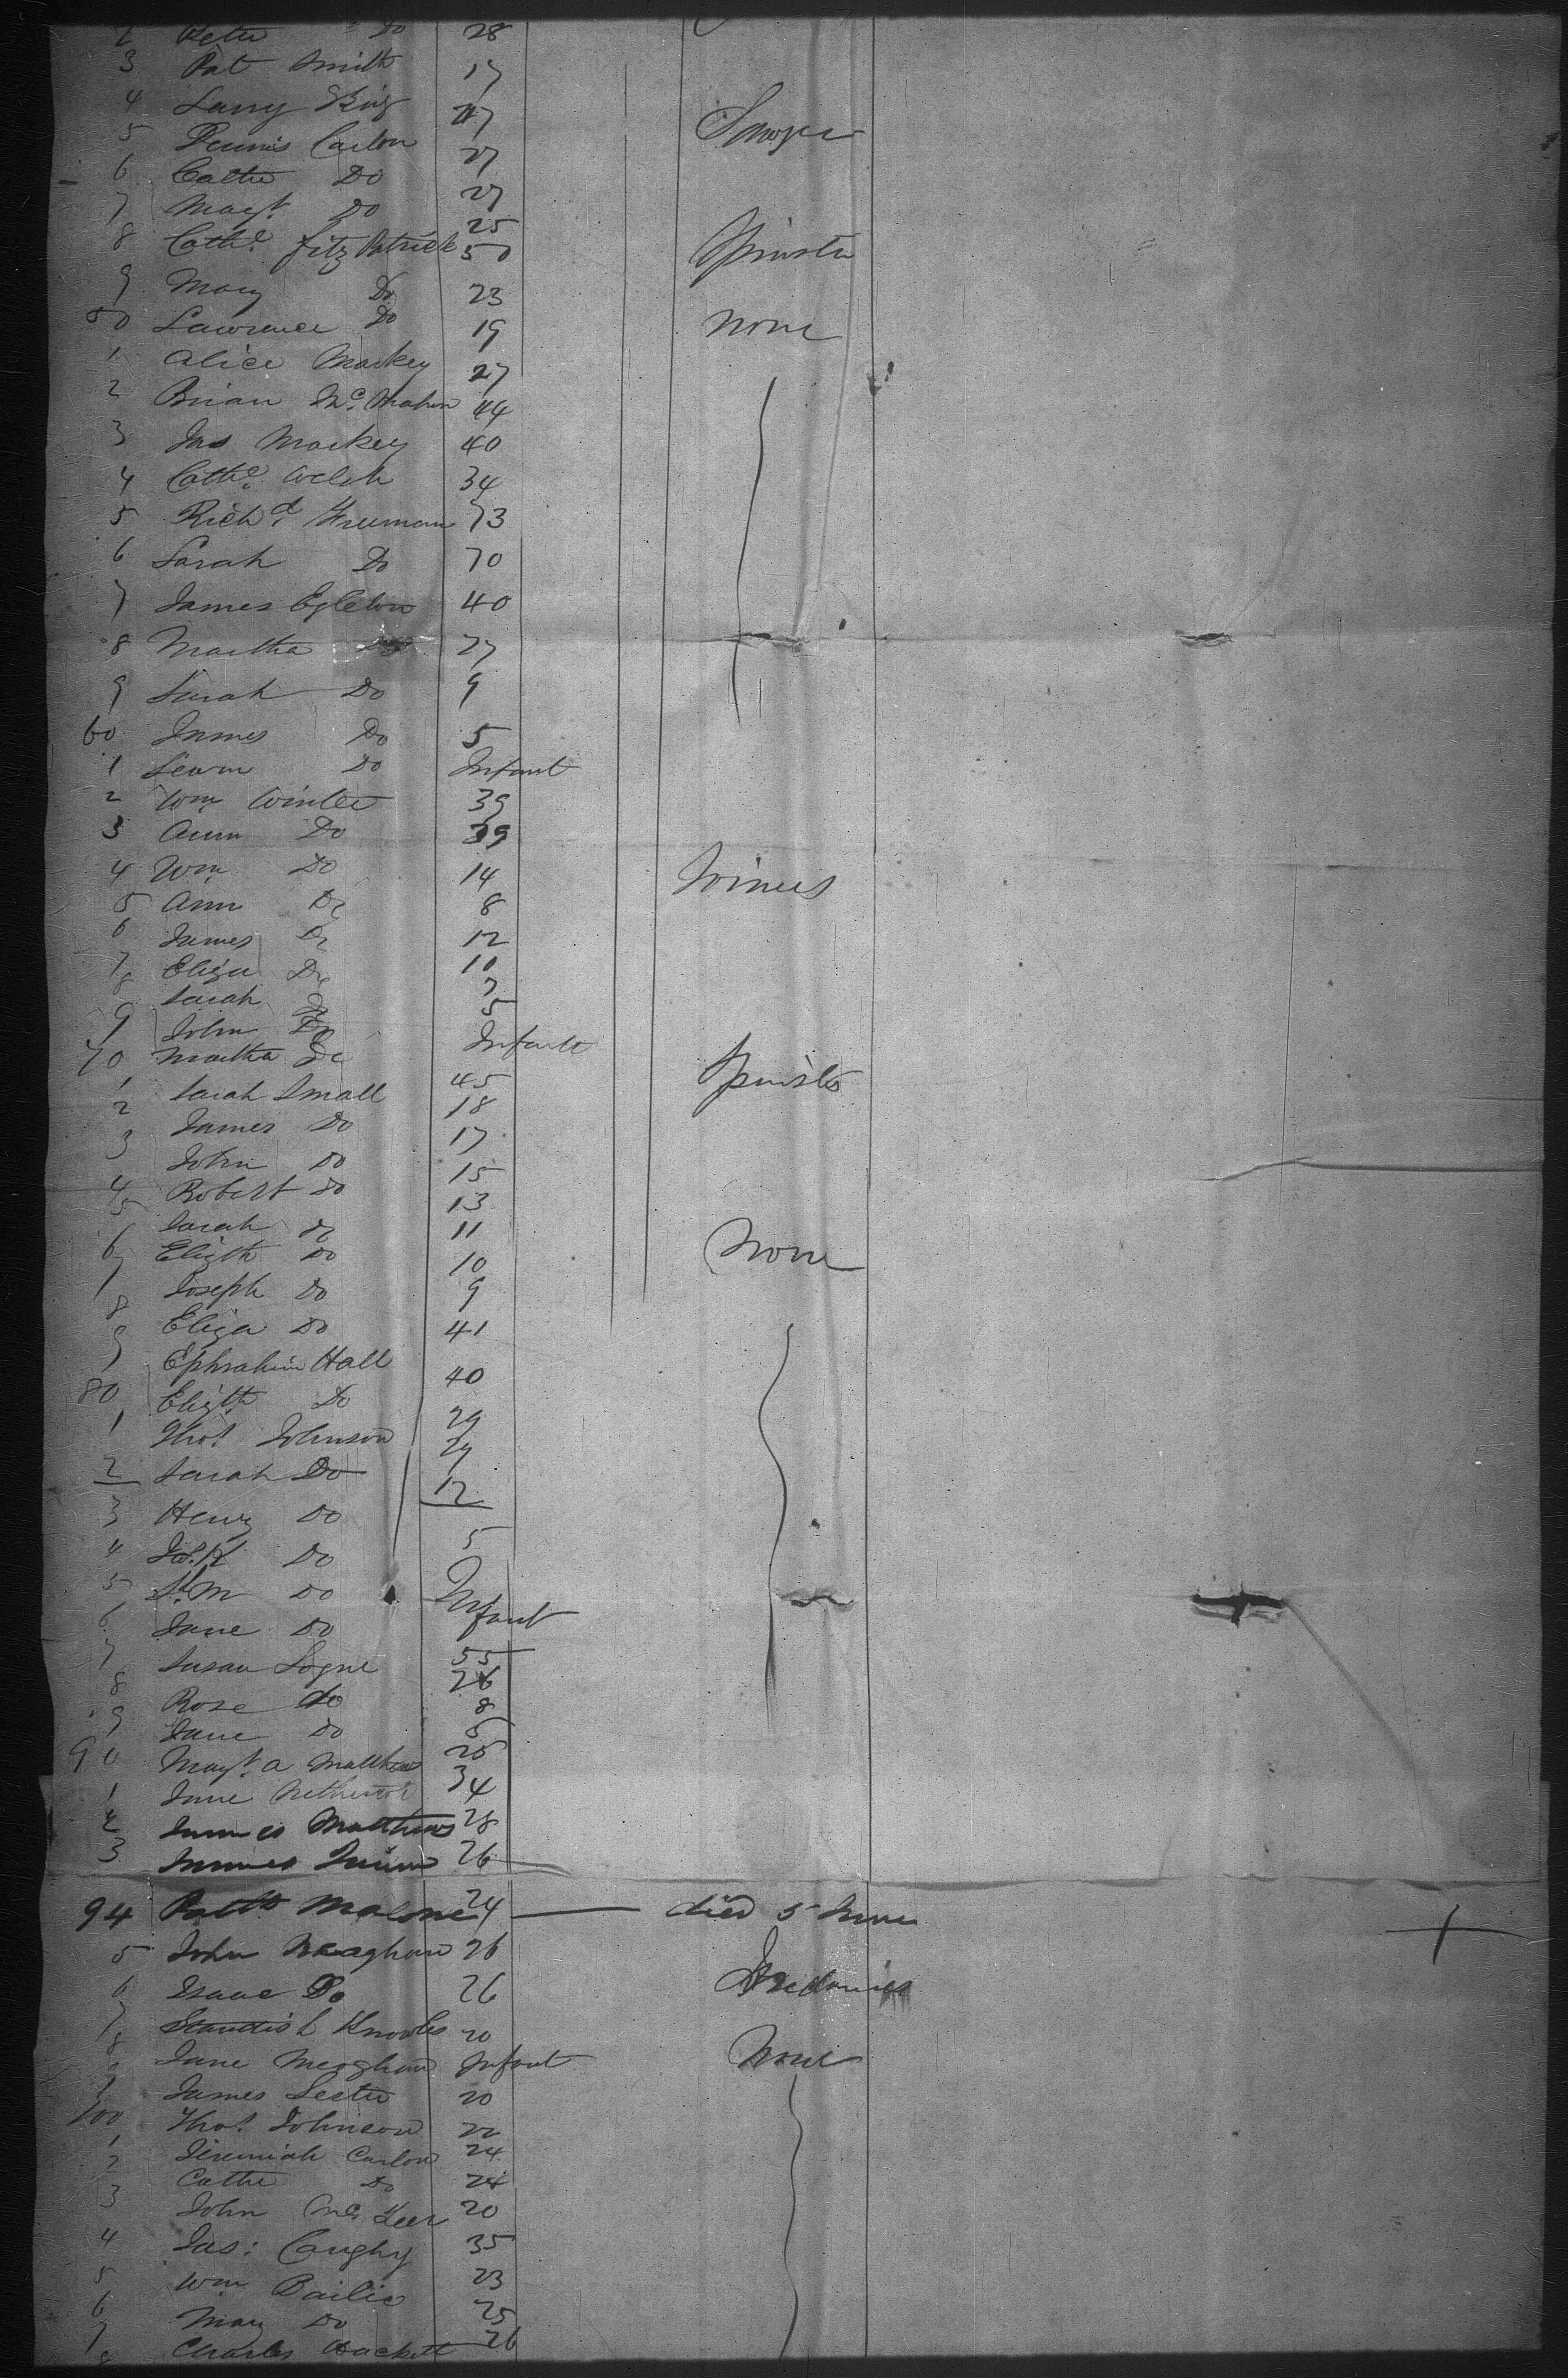 2 Do 28
3 Pat Smith 17
4 Larry King 47
5 Dennis Carlon 27 Sawyer
6 Cathe Do 27
7 Magt. Do 25
8 Cathe. Fitz Patrick 50 Spinster
9 Mary Do 23
50 Lawrence Do 19 None
1 Alice Markey 27
2 Brian Mc. Mahon 44
3 Jas Markey 40
4 Cathe. Welsh 34
5 Richd. Freeman 73
6 Sarah Do 70
7 James Egleton 40
8 Martha Do 27
9 Sarah Do 9
60 James Do 5
1 Do Infant
2 Wm Winter 39
3 Ann Do 39
4 Wm Do 14
5 Ann Do 8
6 James Do 12
7 Eliza Do 10
8 Sarah Do 7
9 John Do 5
70 Martha Do Infant
1 Sarah Small 45 Spinster
2 James Do 18
3 John Do 17
4 Robert Do 15
5 Sarah Do 13
6 Elizth Do 11 None
7 Joseph Do 10
8 Eliza Do 9
9 Ephrahim Hall 41
80 Elizth Do 40
1 Thos. Johnson 29
2 Sarah Do 29
3 Henry Do 12
4 Do 5
5 Do
6 Jane Do Infant
7 Susan Logne 55
8 Rose do 26
9 Jane Do 8
5
90 Magt. A Matthew 25
1 Jane 34
2 James Matthews 28
3 James 26
94 Malone 24 died 5 June
5 John Meaghan 26
6 Isaac Do 26
7 Standish Knowles 20
8 Jane Meaghan Infant None
9 James 20
100 Thos. Johnson 22
1 Jeremiah Carlon 24
2 Cathe Do 24
3 John Mc. Keer 20
4 Jas: Caughy 35
5 Wm Bailie 23
6 Mary Do 25
7 Charles Hackett 26
8